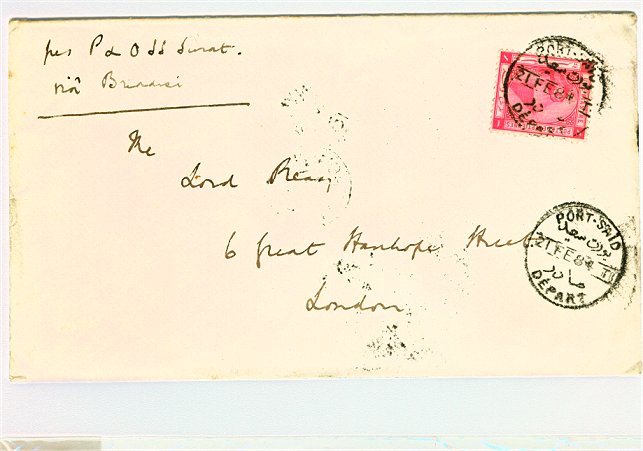 per P & O SS Surat.
viâ Brindisi
The
Lord Reay
6 Great Stanhope Street
London
PORT-SAID
بورت سعيد
21 FE 84
DÉPART
PORT-SAID
بورت سعيد
21 FE 84 T I
صادر
DÉPART